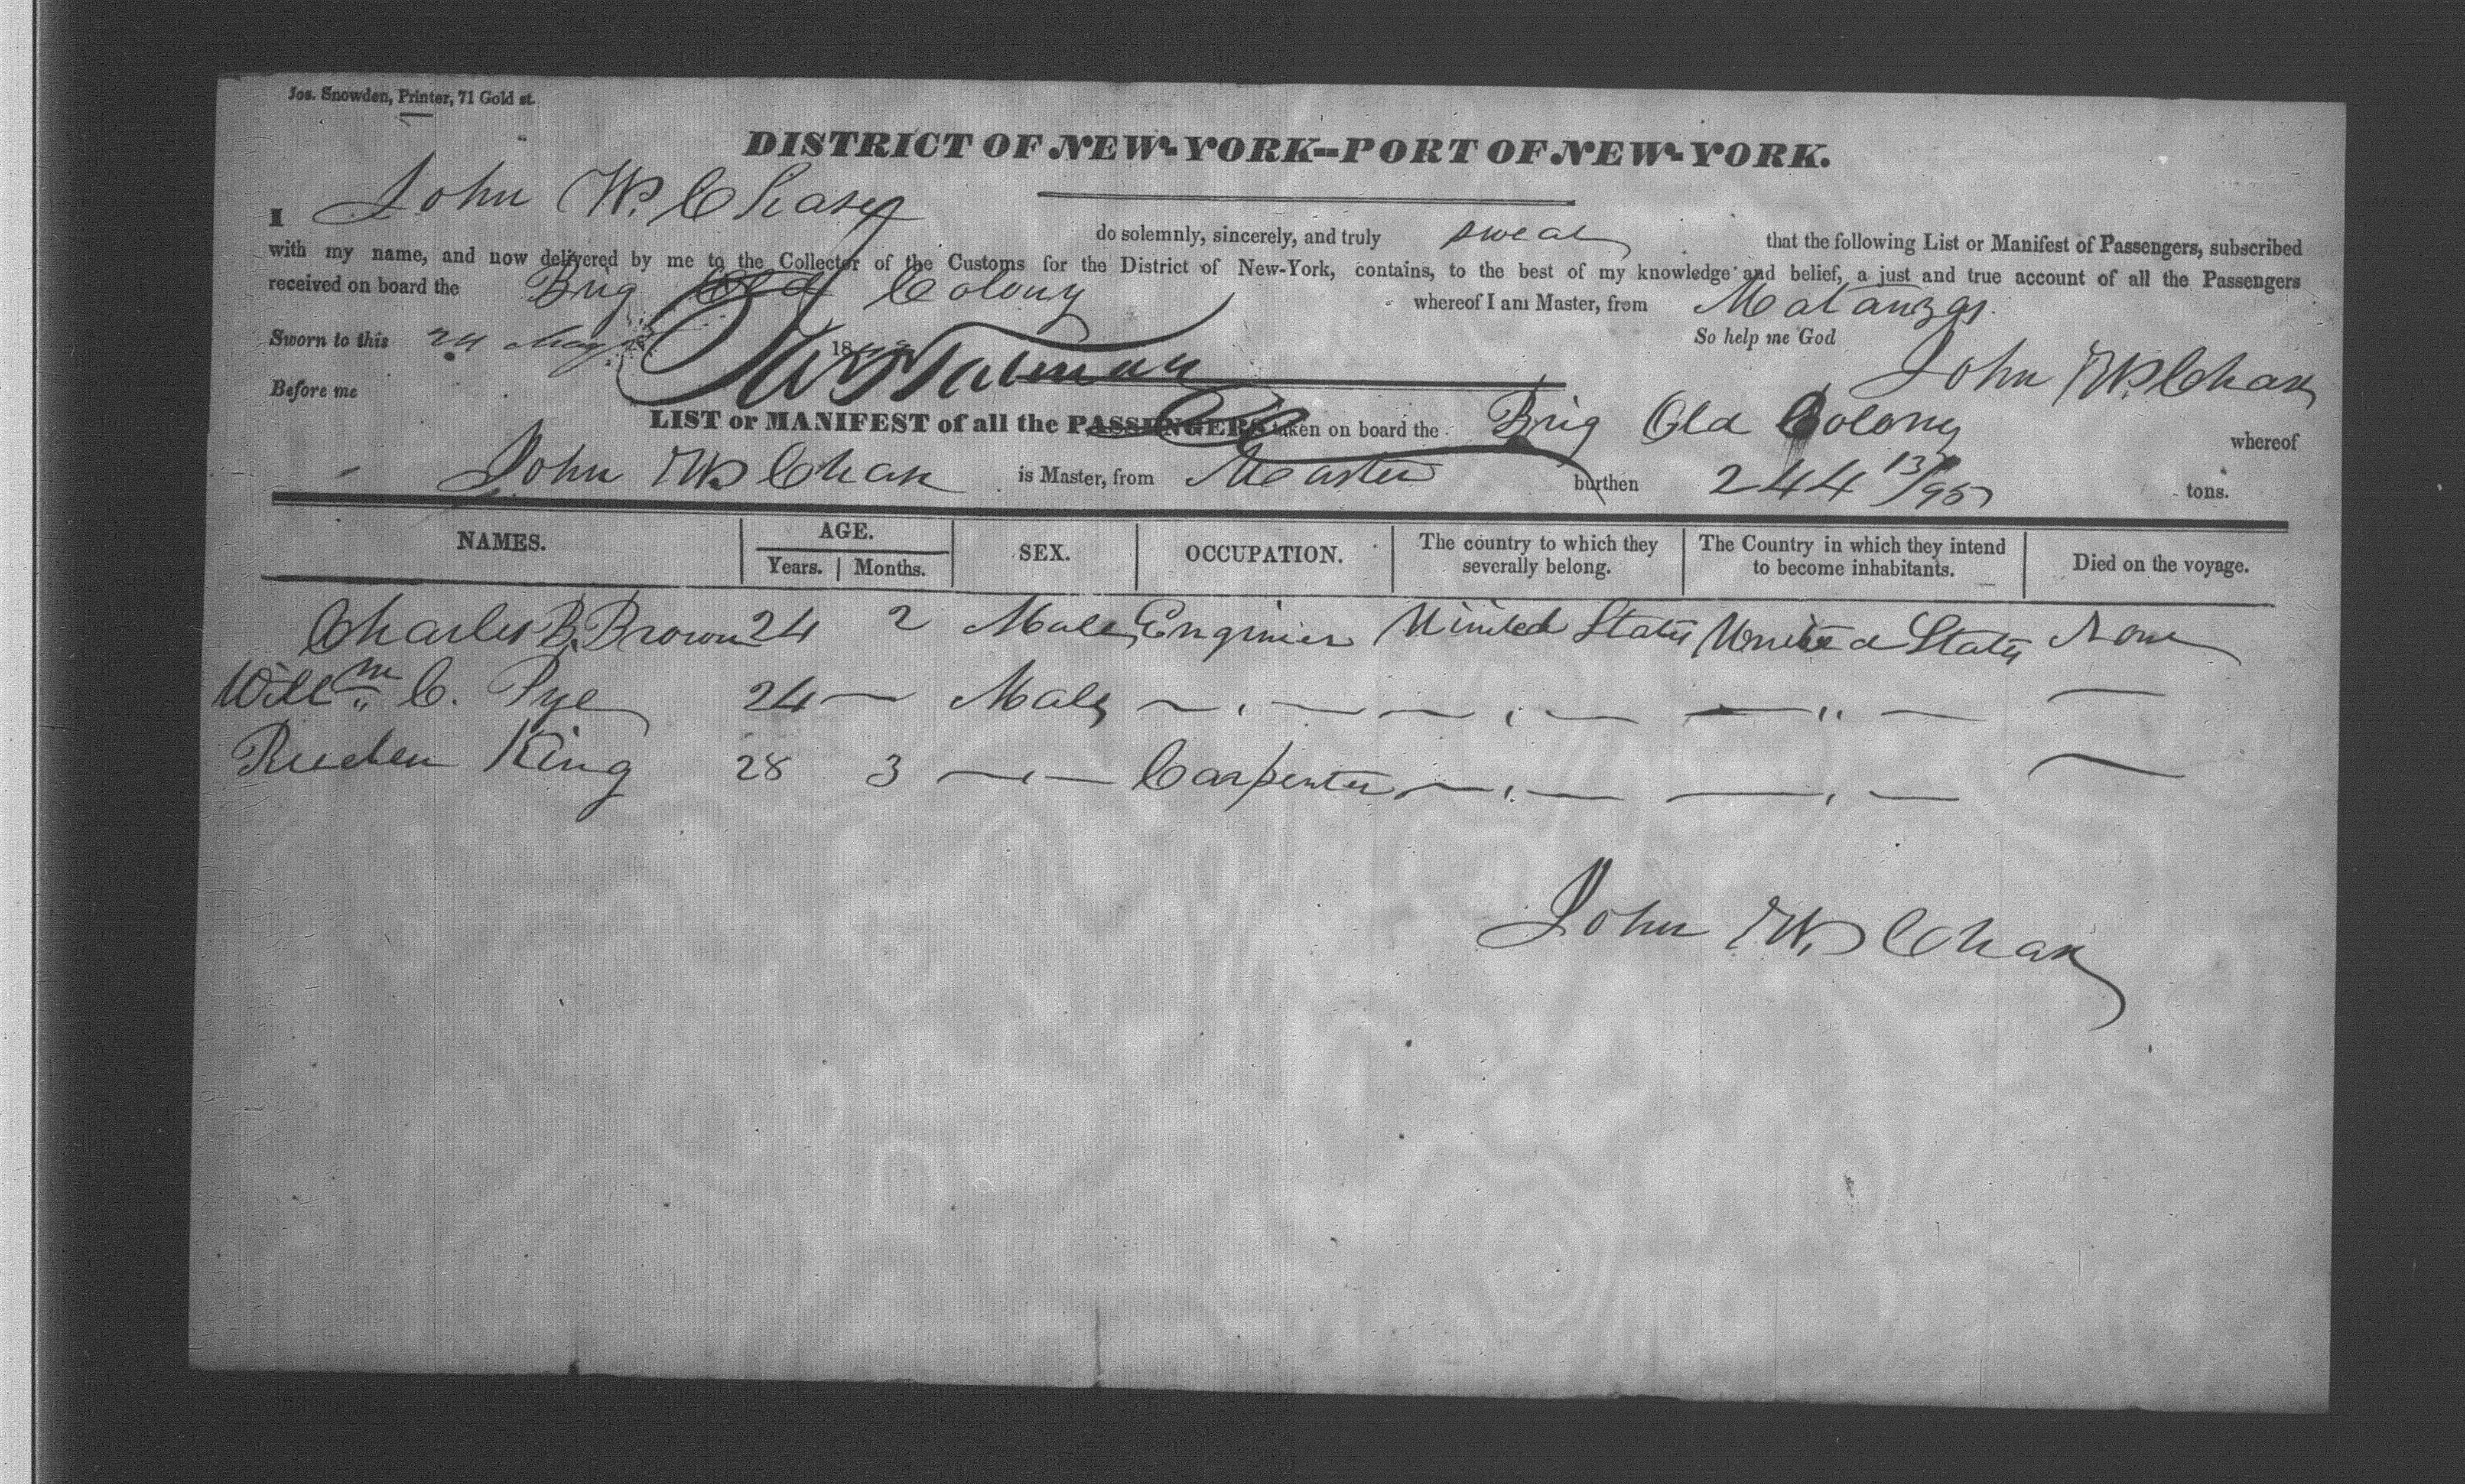 Jos. Snowden, Printer, 71 Gold st.
DISTRICT OF NEW-YORK--PORT OF NEW-YORK.
I John W. Chase do solemnly, sincerely, and truly swear that the following List or Manifest of Passengers, subscribed
with my name, and now delivered by me to the Collector of the Customs for the District of New-York, contains, to the best of my knowledge and belief, a just and true account of all the Passengers
received on board the Brig Old Colony whereof I am Master, from Matanzas.
Sworn to this 24 May 18 So help me God
John W. Chase
Before me
LIST or MANIFEST of all the PASSENGERS taken on board the Brig Old Colony whereof
John W. Chase is Master, from Master burthen 244 13/95 tons.
NAMES. AGE. SEX. OCCUPATION. The country to which they severally belong. The Country in which they intend to become inhabitants. Died on the voyage.
Years. Months.
Charles B. Brown 24 2 Male Enginier United States United States None
Willm C. Pye 24 — Male — " — — " — — " — —
Rueben King 28 3 — " — Carpenter — " — — " — —
John W. Chase